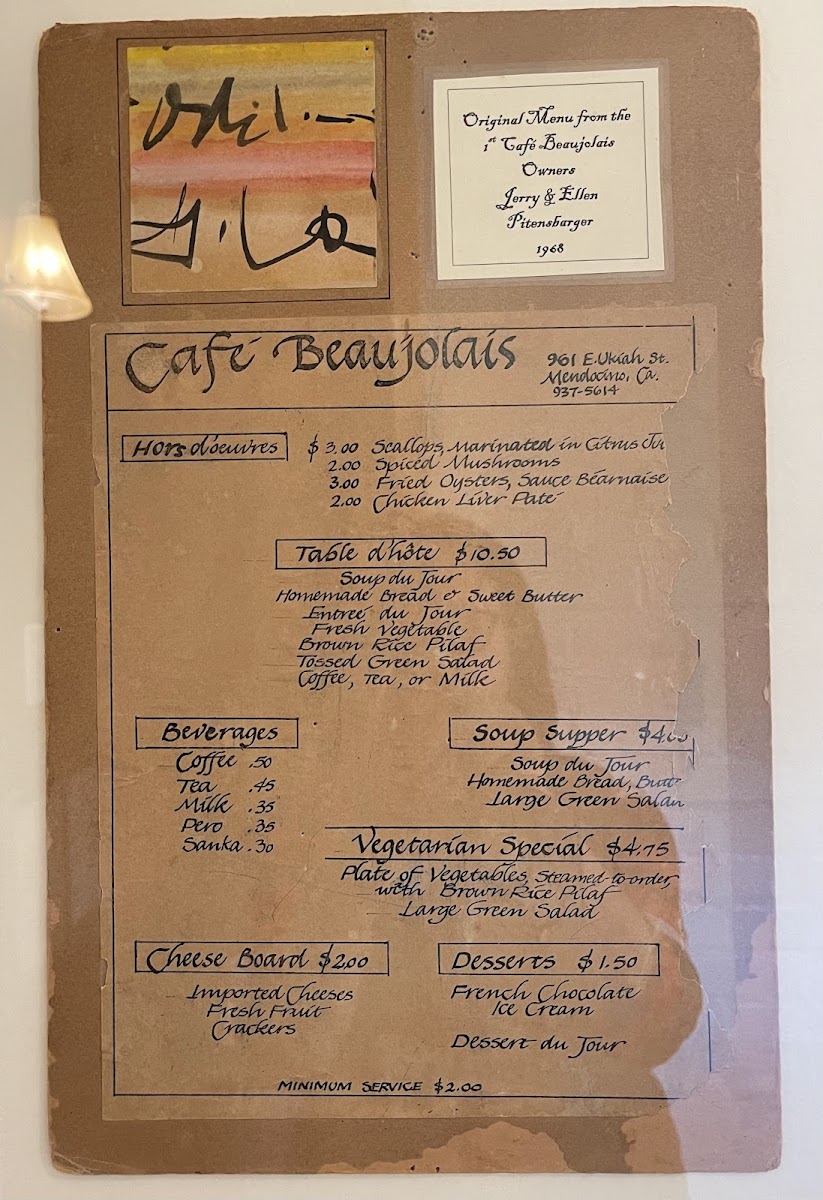 Original Menu from the
1st Café Beaujolais
Owners
Jerry & Ellen
Pitensbarger
1968
Café Beaujolais
961 E. Ukiah St.
Mendocino, Ca.
937-5614
Hors d'oeuvres
$3.00 Scallops, Marinated in Citrus
2.00 Spiced Mushrooms
3.00 Fried Oysters, Sauce Béarnaise
2.00 Chicken Liver Paté
Table d'hôte $10.50
Soup du Jour
Homemade Bread & Sweet Butter
Entreé du Jour
Fresh Vegetable
Brown Rice Pilaf
Tossed Green Salad
Coffee, Tea, or Milk
Beverages
Coffee .50
Tea .45
Milk .35
Pero .35
Sanka .30
Soup Supper
Soup du Jour
Homemade Bread, Butt
Large Green Salad
Vegetarian Special $4.75
Plate of Vegetables, Steamed-to-order,
with Brown Rice Pilaf
Large Green Salad
Cheese Board $2.00
Imported Cheeses
Fresh Fruit
Crackers
Desserts $1.50
French Chocolate
Ice Cream
Dessert du Jour
MINIMUM SERVICE $2.00